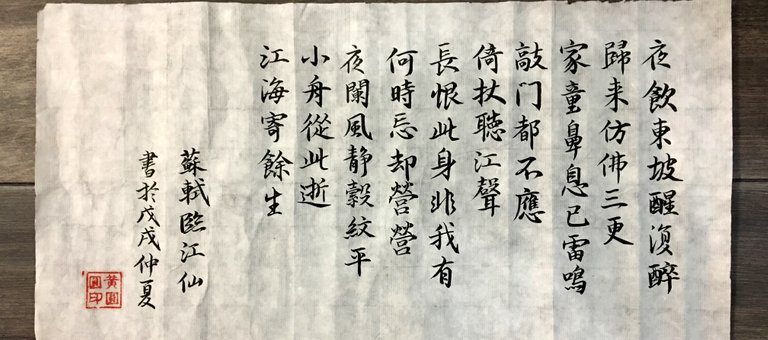 夜飲東坡醒復醉
歸来仿佛三更
家童鼻息已雷鳴
敲门都不應
倚杖聽江聲
長恨此身非我有
何時忘却營營
夜闌風静縠紋平
小舟從此逝
江海寄餘生
蘇軾臨江仙
書於戊戌仲夏
黃圓
圓印